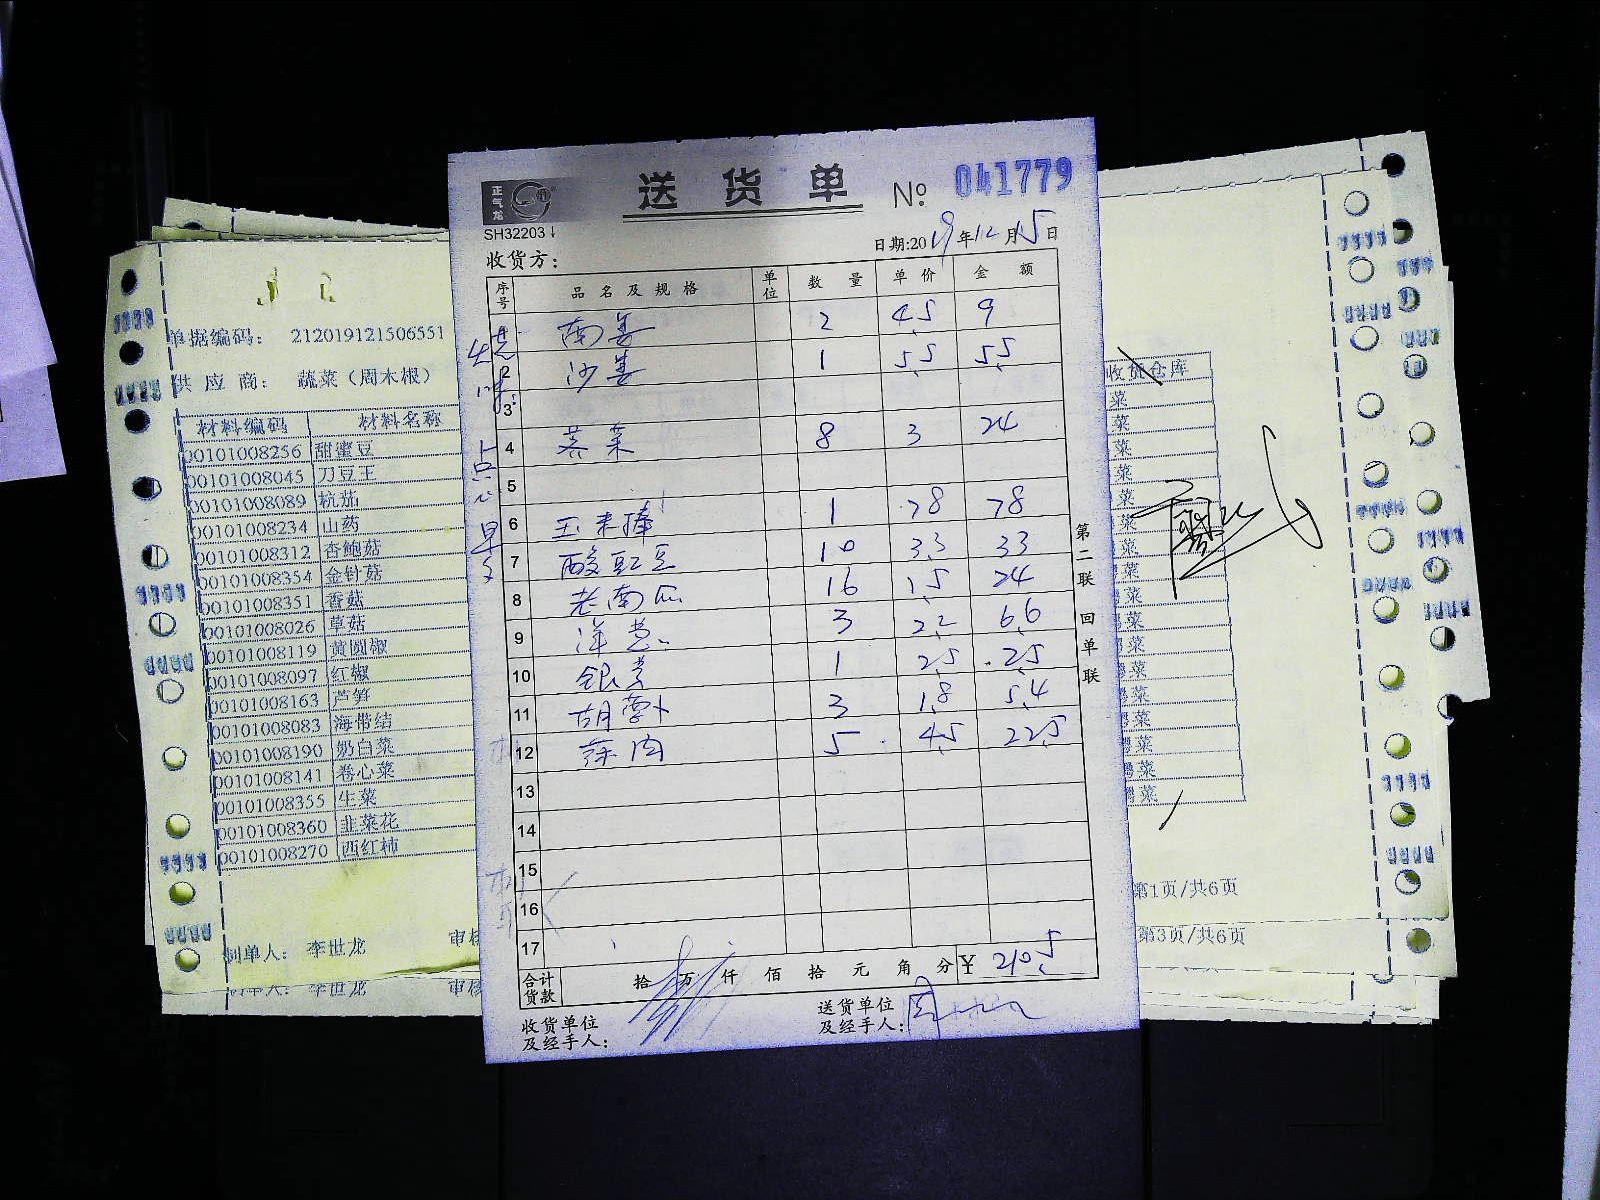 正气龙
送货单 № 041779
SH32203
日期:2019年12月15日
收货方:
序号 品名及规格 单位 数量 单价 金额
1 南姜 2 4.5 9
2 沙姜 1 5.5 5.5
3
4 8 3 24
5
6 玉米棒 1 78 78
7 酸豇豆 10 3.3 33
8 老南瓜 16 1.5 24
9 洋葱 3 2.2 6.6
10 1 2.5 2.5
11 胡萝卜 3 1.8 5.4
12 蒜肉 5 4.5 22.5
13
14
15
16
17
合计货款 拾 万 仟 佰 拾 元 角 分 ¥ 210.5
收货单位及经手人:
送货单位及经手人:
第二联 回单联
单据编码: 212019121506551
供应商: 蔬菜(周木根)
材料编码 材料名称
00101008256 甜蜜豆
00101008045 刀豆王
00101008089 杭茄
00101008234 山药
00101008312 杏鲍菇
00101008354 金针菇
00101008351 香菇
00101008026 草菇
00101008119 黄圆椒
00101008097 红椒
00101008163 芦笋
00101008083 海带结
00101008190 奶白菜
00101008141 卷心菜
00101008355 生菜
00101008360 韭菜花
00101008270 西红柿
制单人: 李世龙 审核
制单人: 李世龙 审核
收货仓库
菜
菜
菜
菜
菜
菜
菜
菜
菜
菜
菜
菜
菜
菜
菜
菜
菜
第1页/共6页
第3页/共6页